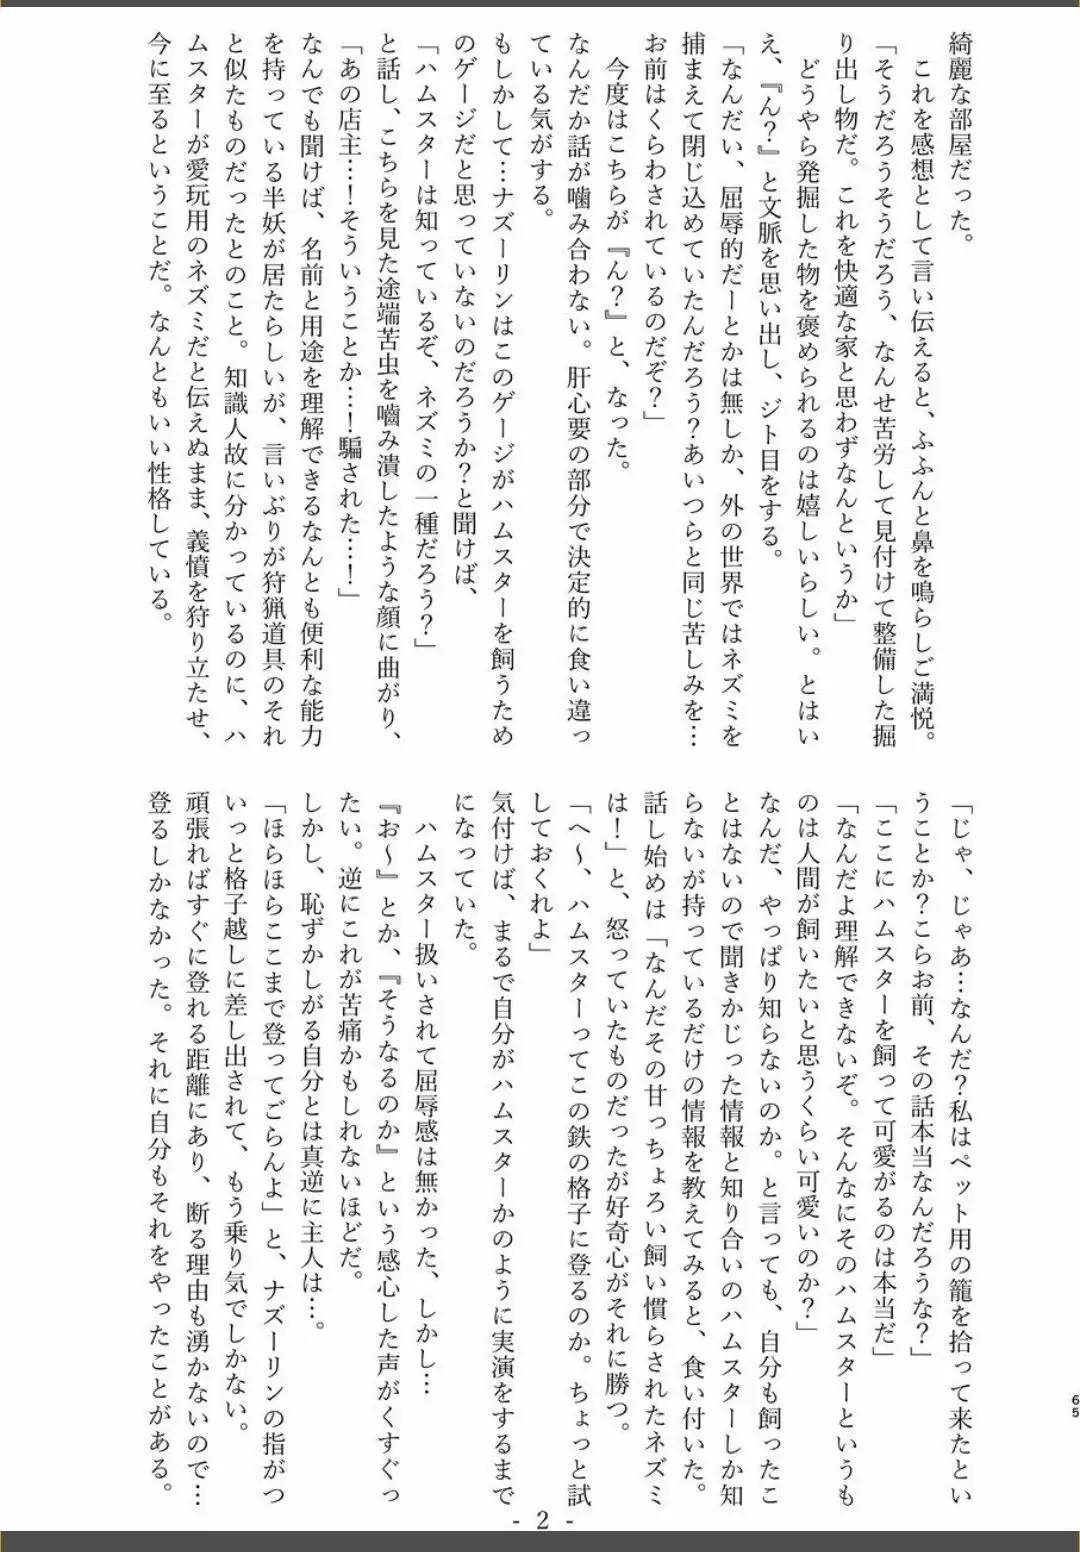 綺麗な部屋だった。
　これを感想として言い伝えると、ふふんと鼻を鳴らしご満悦。
「そうだろうそうだろう、なんせ苦労して見付けて整備した掘
り出し物だ。これを快適な家と思わずなんというか」
　どうやら発掘した物を褒められるのは嬉しいらしい。とはい
え、『ん？』と文脈を思い出し、ジト目をする。
「なんだい、屈辱的だーとかは無しか、外の世界ではネズミを
捕まえて閉じ込めていたんだろう？あいつらと同じ苦しみを…
お前はくらわされているのだぞ？」
　今度はこちらが『ん？』と、なった。
なんだか話が噛み合わない。肝心要の部分で決定的に食い違っ
ている気がする。
もしかして…ナズーリンはこのゲージがハムスターを飼うため
のゲージだと思っていないのだろうか？と聞けば、
「ハムスターは知っているぞ、ネズミの一種だろう？」
と話し、こちらを見た途端苦虫を嚙み潰したような顔に曲がり、
「あの店主…！そういうことか…！騙された…！」
なんでも聞けば、名前と用途を理解できるなんとも便利な能力
を持っている半妖が居たらしいが、言いぶりが狩猟道具のそれ
と似たものだったとのこと。知識人故に分かっているのに、ハ
ムスターが愛玩用のネズミだと伝えぬまま、義憤を狩り立たせ、
今に至るということだ。なんともいい性格している。
「じゃ、じゃあ…なんだ？私はペット用の籠を拾って来たとい
うことか？こらお前、その話本当なんだろうな？」
「ここにハムスターを飼って可愛がるのは本当だ」
「なんだよ理解できないぞ。そんなにそのハムスターというも
のは人間が飼いたいと思うくらい可愛いのか？」
なんだ、やっぱり知らないのか。と言っても、自分も飼ったこ
とはないので聞きかじった情報と知り合いのハムスターしか知
らないが持っているだけの情報を教えてみると、食い付いた。
話し始めは「なんだその甘っちょろい飼い慣らされたネズミ
は！」と、怒っていたものだったが好奇心がそれに勝つ。
「へ～、ハムスターってこの鉄の格子に登るのか。ちょっと試
しておくれよ」
気付けば、まるで自分がハムスターかのように実演をするまで
になっていた。
　ハムスター扱いされて屈辱感は無かった、しかし…
『お～』とか、『そうなるのか』という感心した声がくすぐっ
たい。逆にこれが苦痛かもしれないほどだ。
しかし、恥ずかしがる自分とは真逆に主人は…。
「ほらほらここまで登ってごらんよ」と、ナズーリンの指がつ
いっと格子越しに差し出されて、もう乗り気でしかない。
頑張ればすぐに登れる距離にあり、断る理由も湧かないので…
登るしかなかった。それに自分もそれをやったことがある。
65
- 2 -